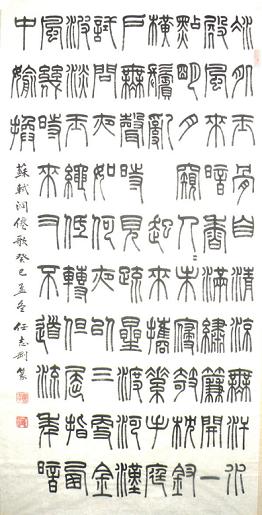 冰肌玉骨自清涼無汗水
殿風來暗香滿繡簾開一
點明月窺人〻未寢攲枕釵
橫鬢亂起來攜素手庭
戶無聲時見疏星渡河漢
試問夜如何夜已三更金
波淡玉繩低轉但屈指西
風幾時來又不道流年暗
中偷換
蘇軾洞僊歌癸巳孟冬任志剛篆